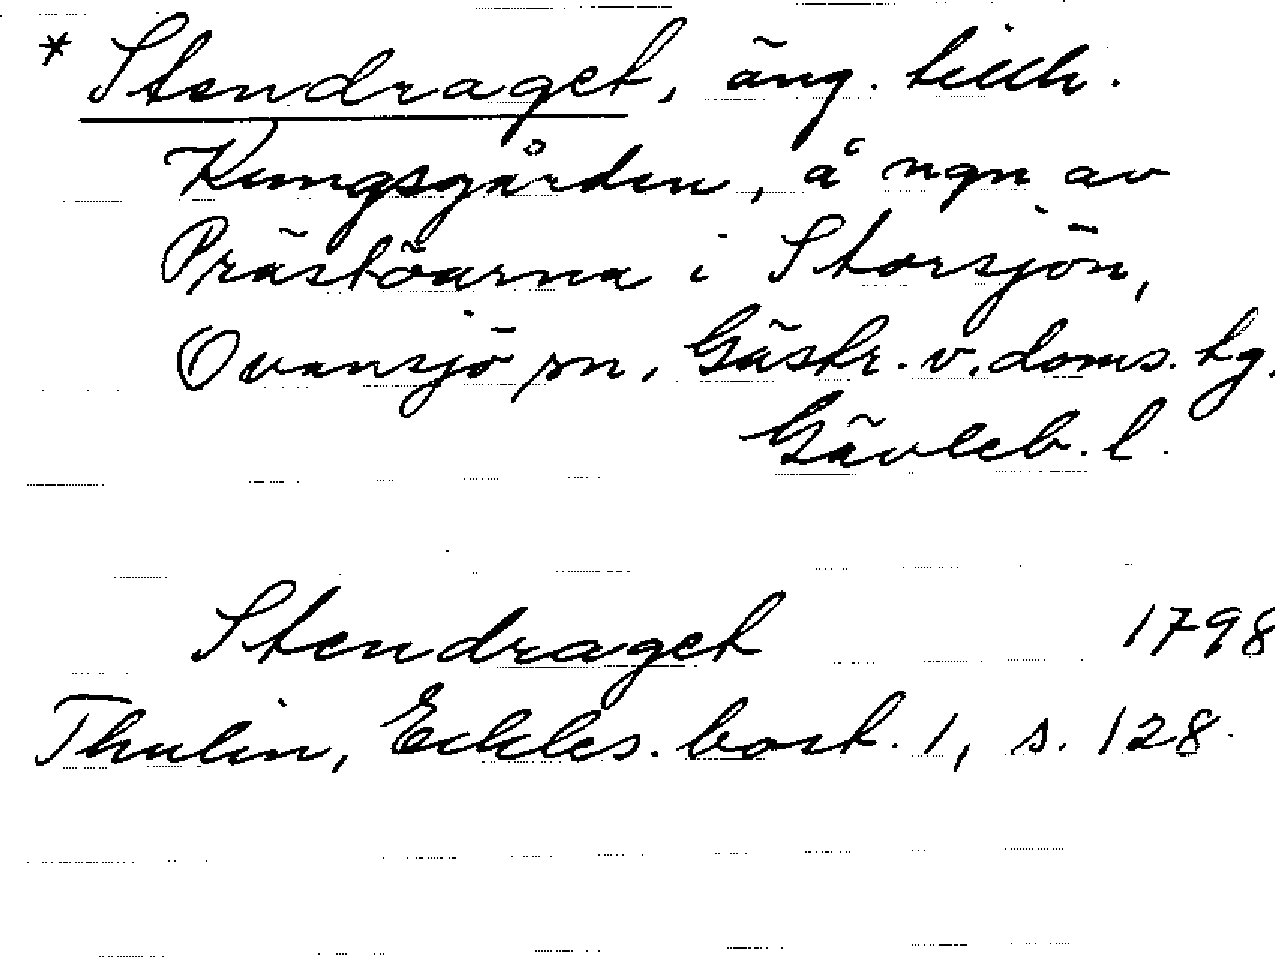 * Stendraget, äng. tillh.
Kungsgården, å ngn av
Prästöarna i Storsjön,
Ovansjö sn, Gästr. v. doms. tg.
Gävleb. l.
Stendraget 1798
Thulin, Eckles. bost. 1, s. 128.